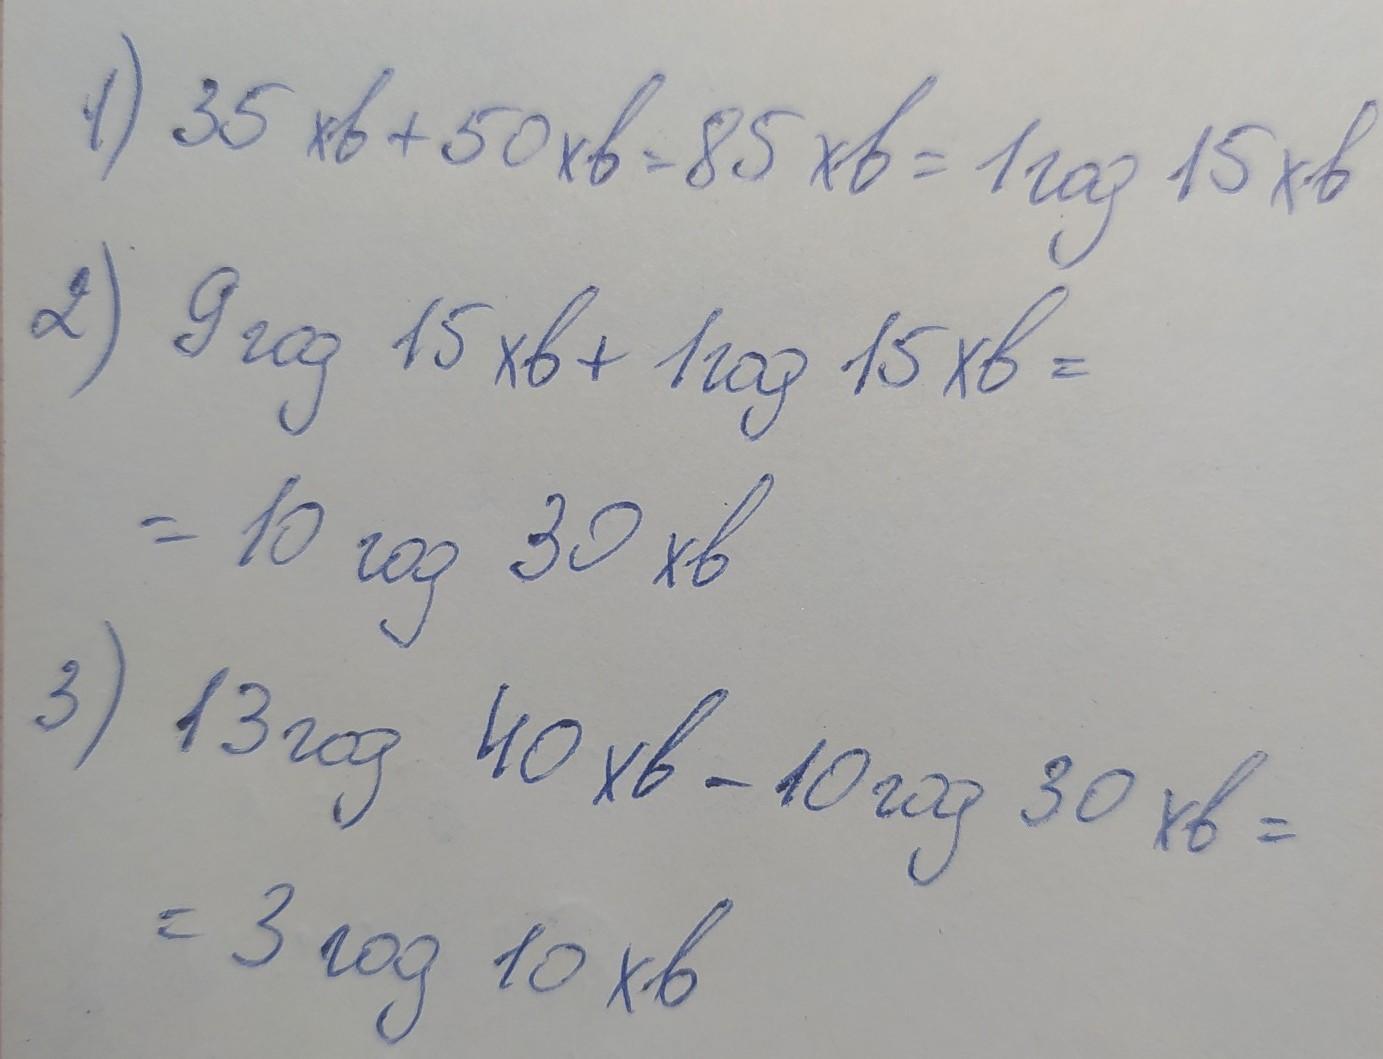 1) 35 хв + 50 хв = 85 хв = 1 год 15 хв
2) 9 год 15 хв + 1 год 15 хв =
= 10 год 30 хв
3) 13 год 40 хв - 10 год 30 хв =
= 3 год 10 хв